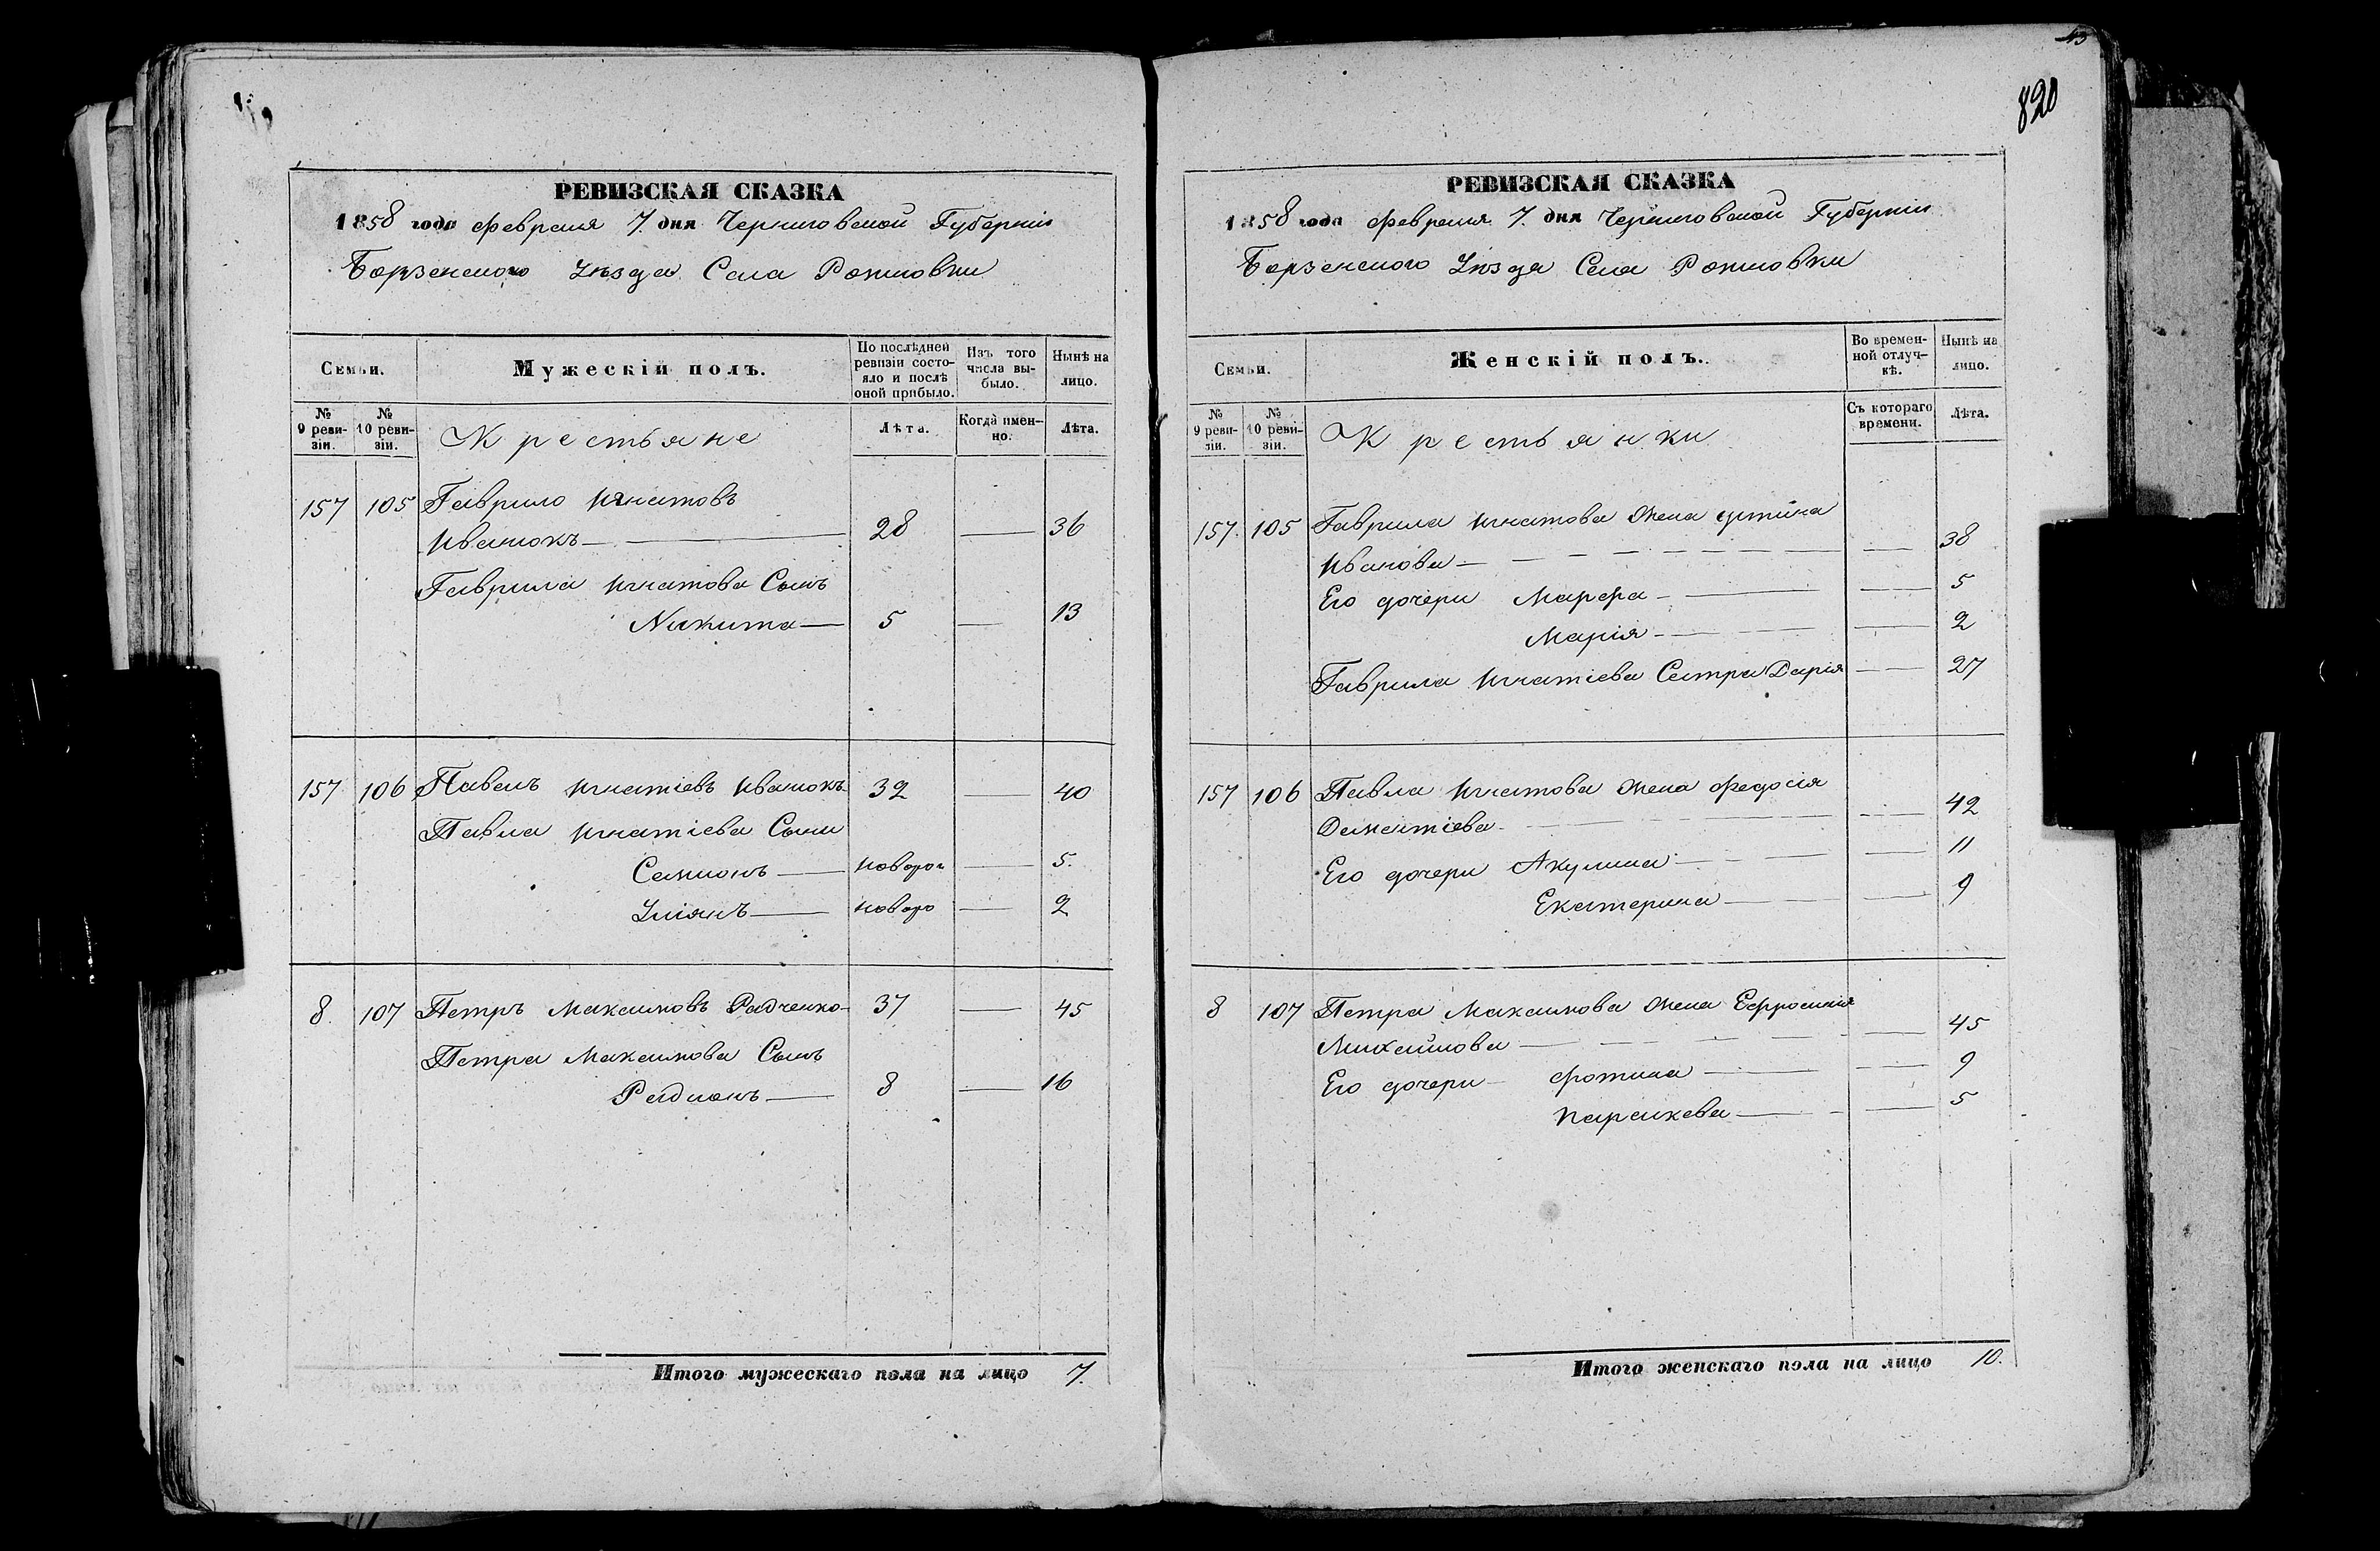 РЕВИЗСКАЯ СКАЗКА
1858 года февраля 7. дня Черниговской Губерніи
Борзенского Уѣзда Села
Семьи.
Мужескій полъ.
По послѣдней ревизіи состояло и послѣ оной прибыло.
Изъ того числа выбыло.
Нынѣ на лицо.
№ 9 ревизіи.
№ 10 ревизіи.
Крестьяне
Лѣта.
Когда именно.
Лѣта.
157 105 Гаврило Игнатовъ
28 36
Гаврила Игнатова Сынъ
Никита 5 13
157 106 Павелъ Игнатіевъ 32 40
Павла Игнатіева Сыны
Семионъ новоро 5.
Уліянъ новоро 2
8. 107 Петръ Максимовъ Радченко 37 45
Петра Максимова Сынъ
Радионъ 8 16
Итого мужескаго пола на лицо 7.
820
РЕВИЗСКАЯ СКАЗКА
1858 года февраля 7. дня Черниговской Губерніи
Борзенского Уѣзда Села
Семьи.
Женскій полъ.
Во временной отлучкѣ.
Нынѣ на лицо.
№ 9 ревизіи.
№ 10 ревизіи.
Крестьянки
Съ котораго времени.
Лѣта.
157. 105 Гаврила Игнатова Жена
Иванова 38
Его дочери Марфа 5
Марія 2
Гаврила Игнатіева Сестра Дарія 27
157 106 Павла Игнатова Жена Федосія
Дементіева 42
Его дочери Акулина 11
Екатерина 9
8 107 Петра Максимова Жена Ефросинія
Михайлова 45
Его дочери Фотина 9
Параскева 5
Итого женскаго пола на лицо 10.